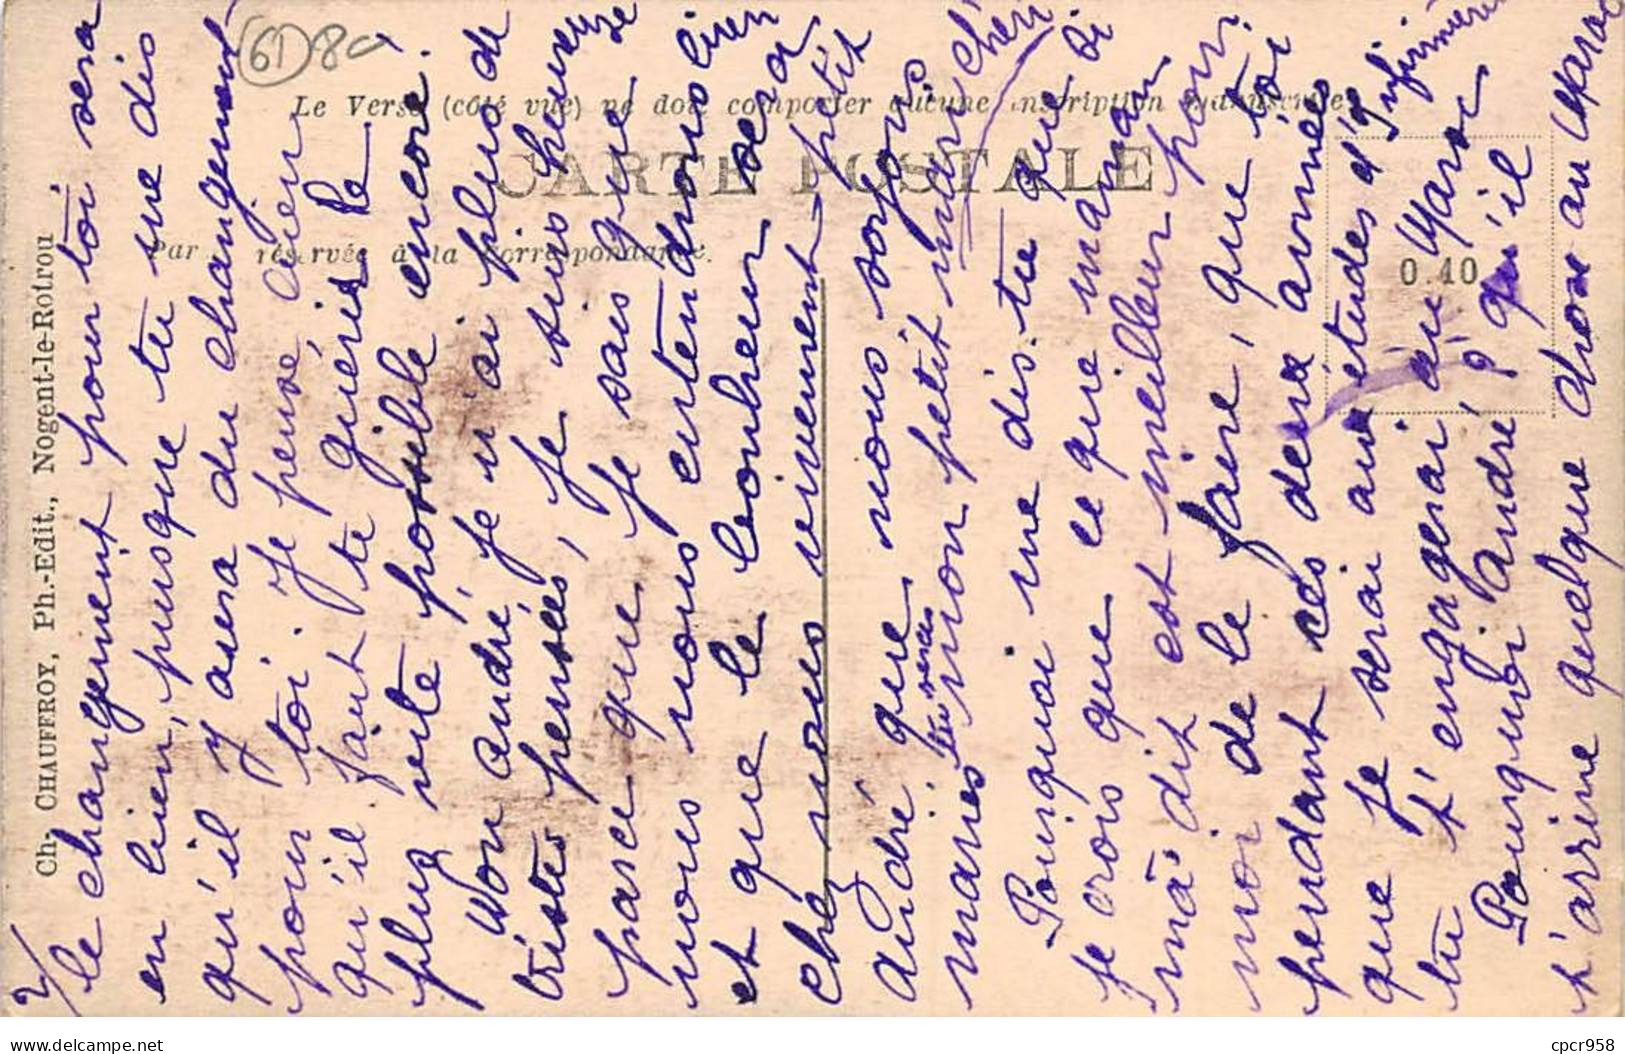 (61) 80
Le Verso (côté vue) ne doit comporter aucune inscription manuscrite
CARTE POSTALE
Partie réservée à la Correspondance.
0.40
Ch. CHAUFFROY, Ph.-Edit., Nogent-le-Rotrou
2/ le changement pour toi sera
en lieu, puisque tu me dis
qu'il y aura du changement
pour toi. Je pense, cien
qu'il faut te guérir le
plus vite possible encore.
Non André, je n'ai plus de
tristes pensées, je suis heureuse
parce que, je sais que
nous nous entendrons bien
et que le bonheur sera
chez nous vivement, petit
André que nous soyons
mariés, tu seras mon petit mari chéri
Pourquoi me dis-tu que si
je crois que ce que maman
m'a dit est meilleur pour
moi de le faire, que toi
pendant ces deux années
que je serai aux études d'Infirmière
tu t'engagerai au Maroc
Pourquoi André, s'il
t'arrive quelque chose au Maroc
cpcr958